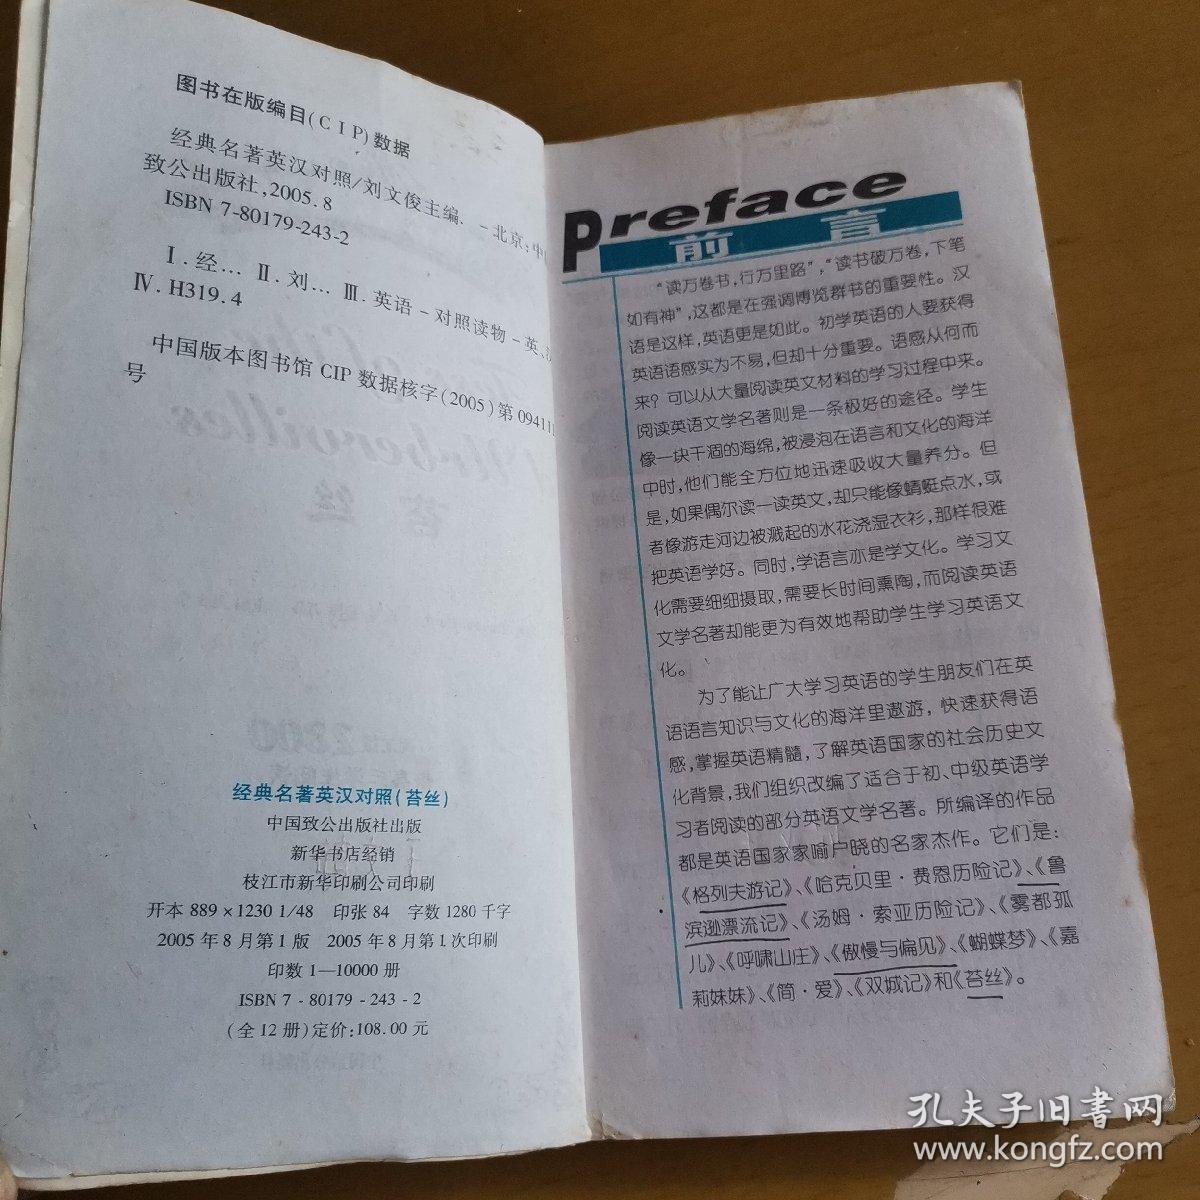 图书在版编目(CIP)数据
经典名著英汉对照/刘文俊主编. －北京:中
致公出版社,2005.8
ISBN 7-80179-243-2
Ⅰ.经… Ⅱ.刘… Ⅲ.英语－对照读物－英、
Ⅳ.H319.4
中国版本图书馆CIP数据核字(2005)第09411
号
经典名著英汉对照(苔丝)
中国致公出版社出版
新华书店经销
枝江市新华印刷公司印刷
开本 889×1230 1/48 印张 84 字数 1280千字
2005年8月第1版 2005年8月第1次印刷
印数 1—10000 册
ISBN 7-80179-243-2
(全12册)定价:108.00元
Preface
前言
“读万卷书,行万里路”,“读书破万卷,下笔
如有神”,这都是在强调博览群书的重要性。汉
语是这样,英语更是如此。初学英语的人要获得
英语语感实为不易,但却十分重要。语感从何而
来？可以从大量阅读英文材料的学习过程中来。
阅读英语文学名著则是一条极好的途径。学生
像一块干涸的海绵,被浸泡在语言和文化的海洋
中时,他们能全方位地迅速吸收大量养分。但
是,如果偶尔读一读英文,却只能像蜻蜓点水,或
者像游走河边被溅起的水花浇湿衣衫,那样很难
把英语学好。同时,学语言亦是学文化。学习文
化需要细细摄取,需要长时间熏陶,而阅读英语
文学名著却能更为有效地帮助学生学习英语文
化。
为了能让广大学习英语的学生朋友们在英
语语言知识与文化的海洋里遨游,快速获得语
感,掌握英语精髓,了解英语国家的社会历史文
化背景,我们组织改编了适合于初、中级英语学
习者阅读的部分英语文学名著。所编译的作品
都是英语国家家喻户晓的名家杰作。它们是:
《格列夫游记》、《哈克贝里·费恩历险记》、《鲁
滨逊漂流记》、《汤姆·索亚历险记》、《雾都孤
儿》、《呼啸山庄》、《傲慢与偏见》、《蝴蝶梦》、《嘉
莉妹妹》、《简·爱》、《双城记》和《苔丝》。
孔夫子旧书网
www.kongfz.com